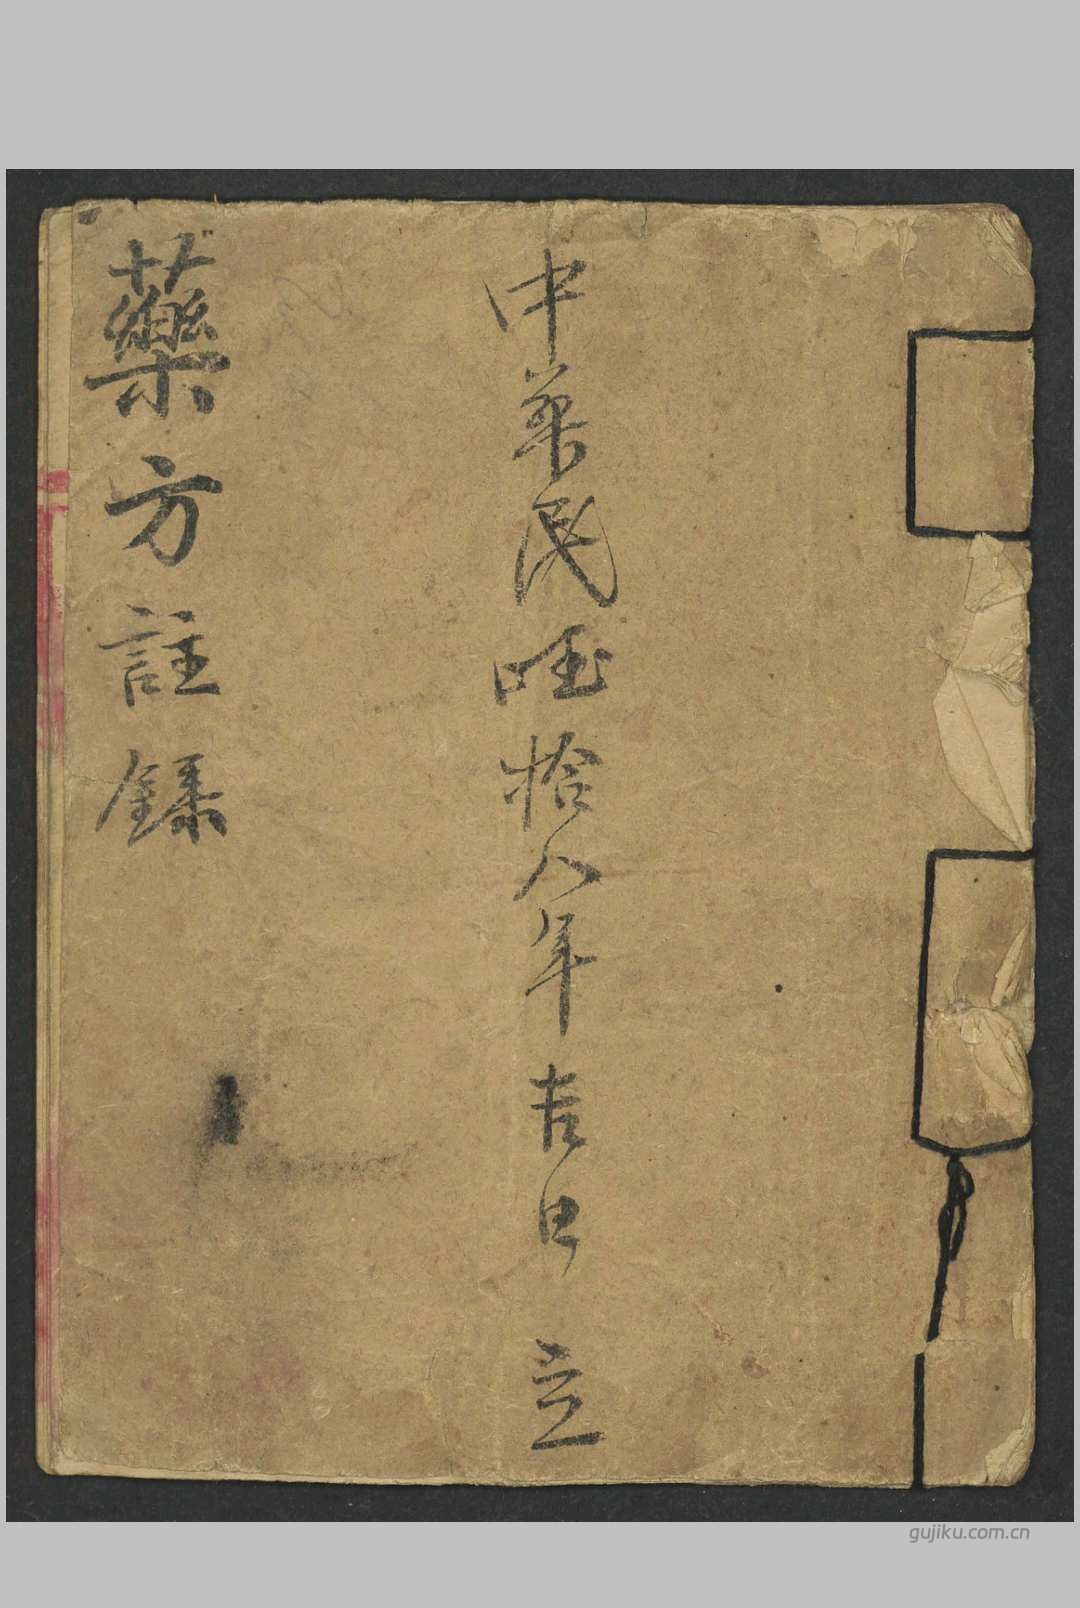 中華民国拾八年吉日 立
藥方註錄
gujiku.com.cn